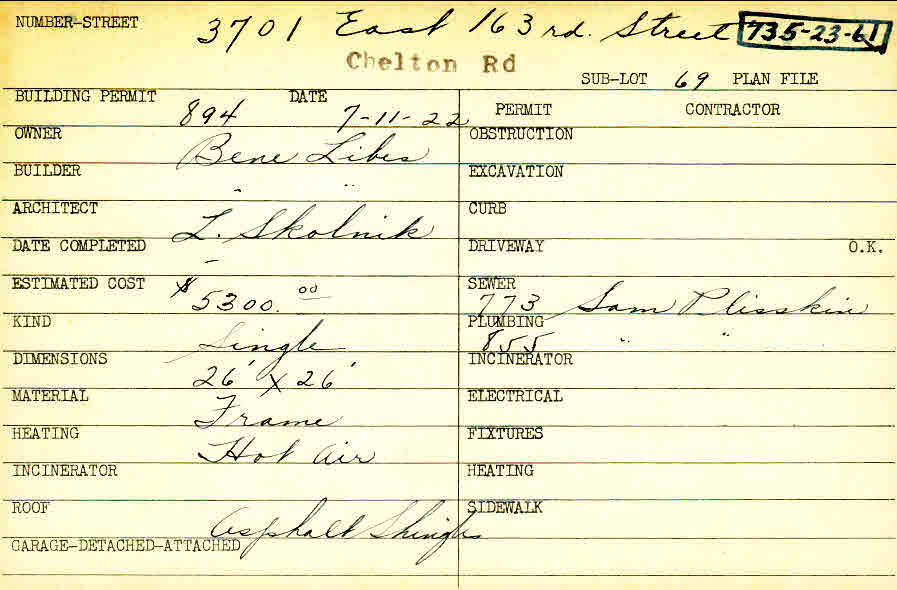 NUMBER-STREET 3701 East 163rd. Street 735-23-61
Chelton Rd
SUB-LOT 69 PLAN FILE
BUILDING PERMIT 894 DATE 7-11-22
PERMIT CONTRACTOR
OWNER Bene Libes
OBSTRUCTION
BUILDER " "
EXCAVATION
ARCHITECT L. Skolnik
CURB
DATE COMPLETED -
DRIVEWAY O.K.
ESTIMATED COST $5300.00
SEWER 773 Sam Plisskin
KIND Single
PLUMBING 855 " "
DIMENSIONS 26' x 26'
INCINERATOR
MATERIAL Frame
ELECTRICAL
HEATING Hot Air
FIXTURES
INCINERATOR
HEATING
ROOF Asphalt Shingles
SIDEWALK
GARAGE-DETACHED-ATTACHED